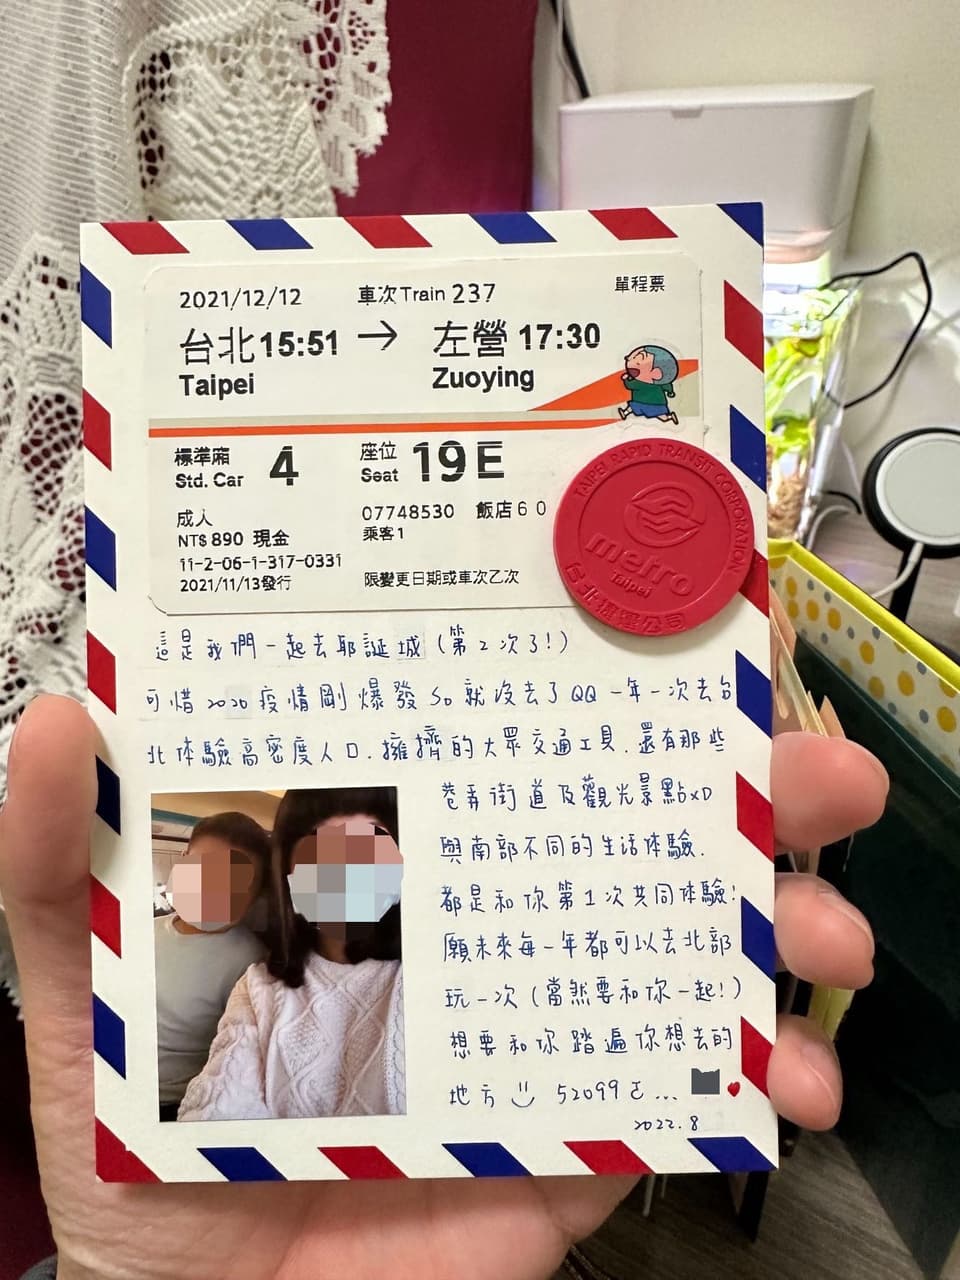 2021/12/12 車次Train 237 單程票
台北15:51 → 左營 17:30
Taipei Zuoying
標準廂 4 座位 19E
Std. Car Seat
成人 07748530 飯店60
NT$ 890 現金 乘客1
11-2-06-1-317-0331
2021/11/13發行 限變更日期或車次乙次
TAIPEI RAPID TRANSIT CORPORATION
metro
Taipei
台北捷運公司
這是我們一起去耶誕城(第2次了!)
可惜2020疫情剛爆發so就沒去了QQ 一年一次去台
北体驗高密度人口.擁擠的大眾交通工具.還有那些
巷弄街道及觀光景點xD
與南部不同的生活体驗.
都是和你第1次共同体驗!
願未來每一年都可以去北部
玩一次(當然要和你一起!)
想要和你踏遍你想去的
地方 52099己...
2022.8